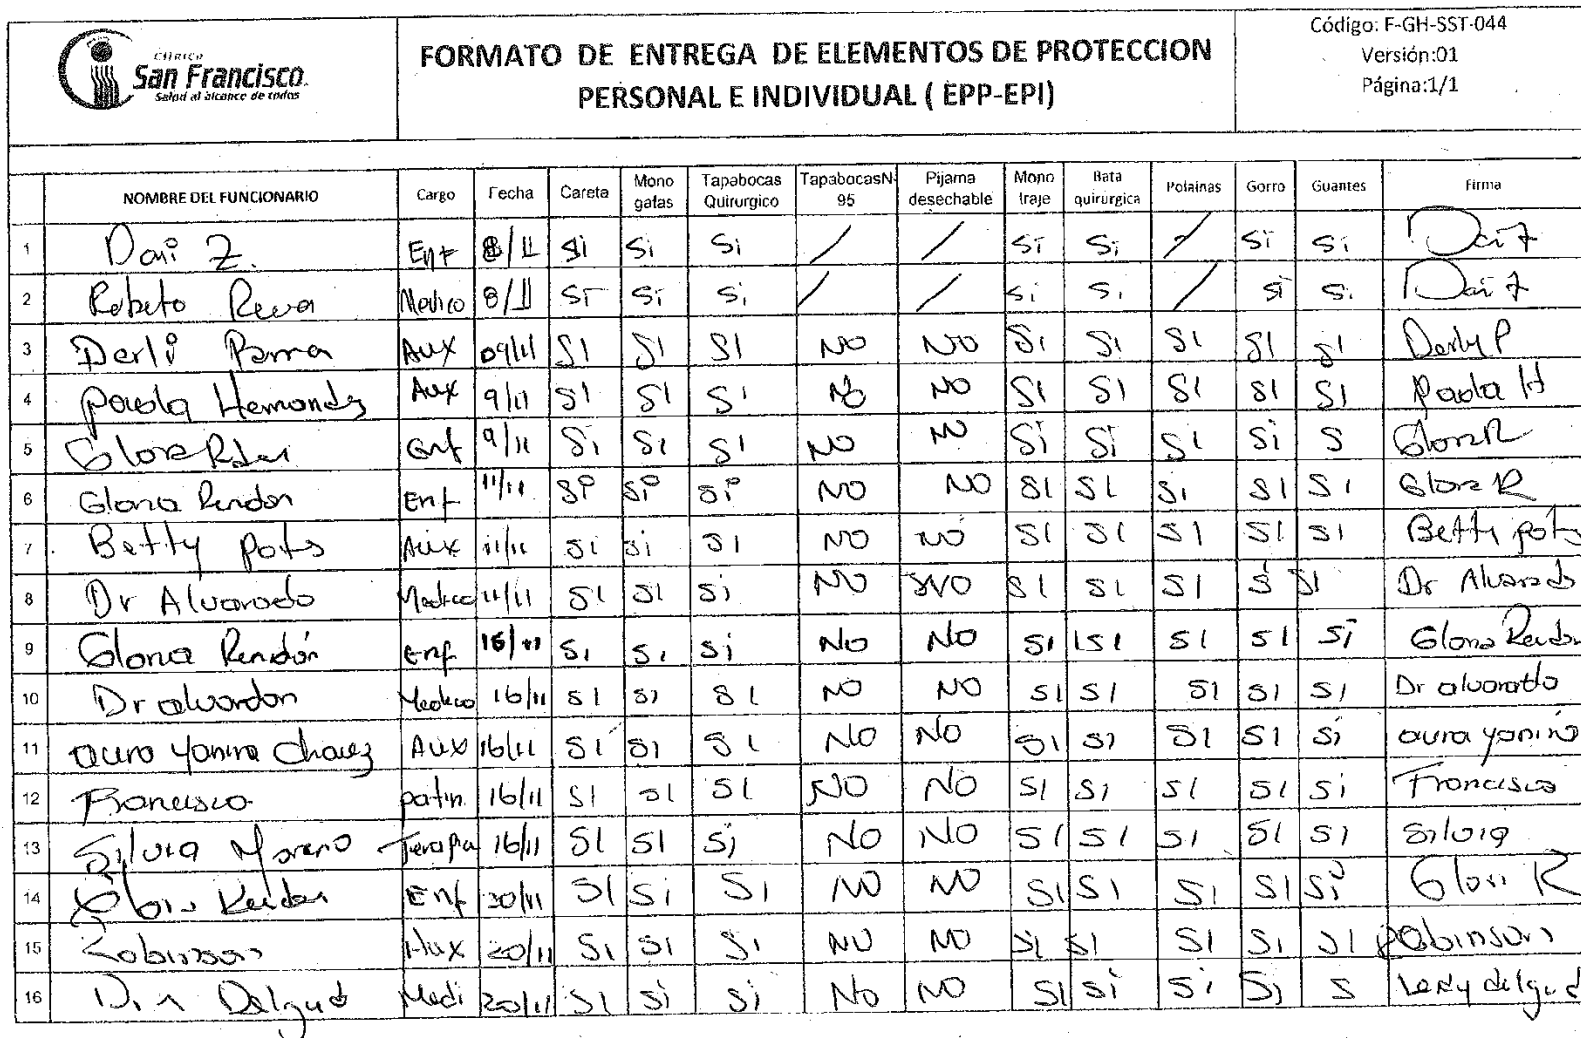 Clínica
San Francisco.
Salud al alcance de todos
FORMATO DE ENTREGA DE ELEMENTOS DE PROTECCION
PERSONAL E INDIVIDUAL ( EPP-EPI)
Código: F-GH-SST-044
Versión:01
Página:1/1
NOMBRE DEL FUNCIONARIO Cargo Fecha Careta Mono gafas Tapabocas Quirurgico TapabocasN-95 Pijama desechable Mono traje Bata quirurgica Polainas Gorro Guantes Firma
1 Dari Z. Enf 8/11 si Si Si / / Si Si / Si Si
2 Medico 8/11 Si Si Si / / Si Si / Si Si
3 Derli Parra Aux 09/11 SI SI SI NO NO SI SI SI SI SI Derly P
4 Paola Hernandz Aux 9/11 SI SI SI NO NO SI SI SI SI SI Paola H
5 Enf 9/11 Si Si SI NO NO Si Si Si Si S Glora R
6 Gloria Rendon Enf 11/11 Si Si Si NO NO SI SI Si SI SI Glora R
7 Betty pots Aux 11/11 Si Si SI NO NO SI SI SI SI SI Betty pots
8 Dr Alvarado Medico 11/11 SI SI Si NO NO SI SI SI S SI Dr Alvarado
9 Gloria Rendón Enf 16/11 Si Si Si NO No SI SI SI SI Si Gloria Rendon
10 Dr alvardon Medico 16/11 SI SI SI NO NO SI SI SI SI SI Dr alvarado
11 aura yanira chavez AUX 16/11 SI SI SI NO NO SI SI SI SI Si aura yanira
12 Francisco patin. 16/11 SI SI SI NO NO SI SI SI SI Si Francisco
13 Silvia Moreno Terapia 16/11 SI SI Si NO NO SI SI SI SI SI Silvia
14 Enf 20/11 SI Si SI NO NO SI SI SI SI Si Glori R
15 Robinson Aux 20/11 SI SI SI NO NO SI SI SI SI SI Robinson
16 Delgad Medi 20/11 SI Si Si No NO SI Si Si Si S Leidy delgad